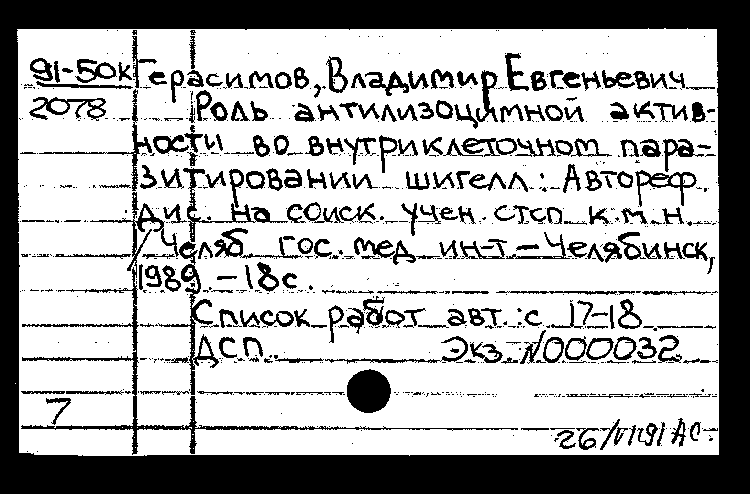 91-50к Герасимов, Владимир Евгеньевич
2078 Роль антилизоцимной актив-
ности во внутриклеточном пара-
зитировании шигелл: Автореф.
дис. на соиск. учен. стсп. к.м.н.
/Челяб гос. мед ин-т. – Челябинск,
1989 – 18с.
Список работ авт.: с 17-18
ДСП. Экз. N000032
7
26/VI91 АС.